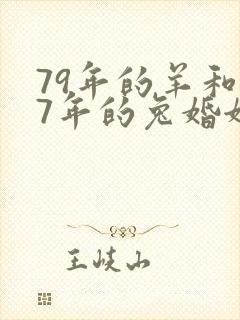 79年的羊和
7年的兔婚
王岐山